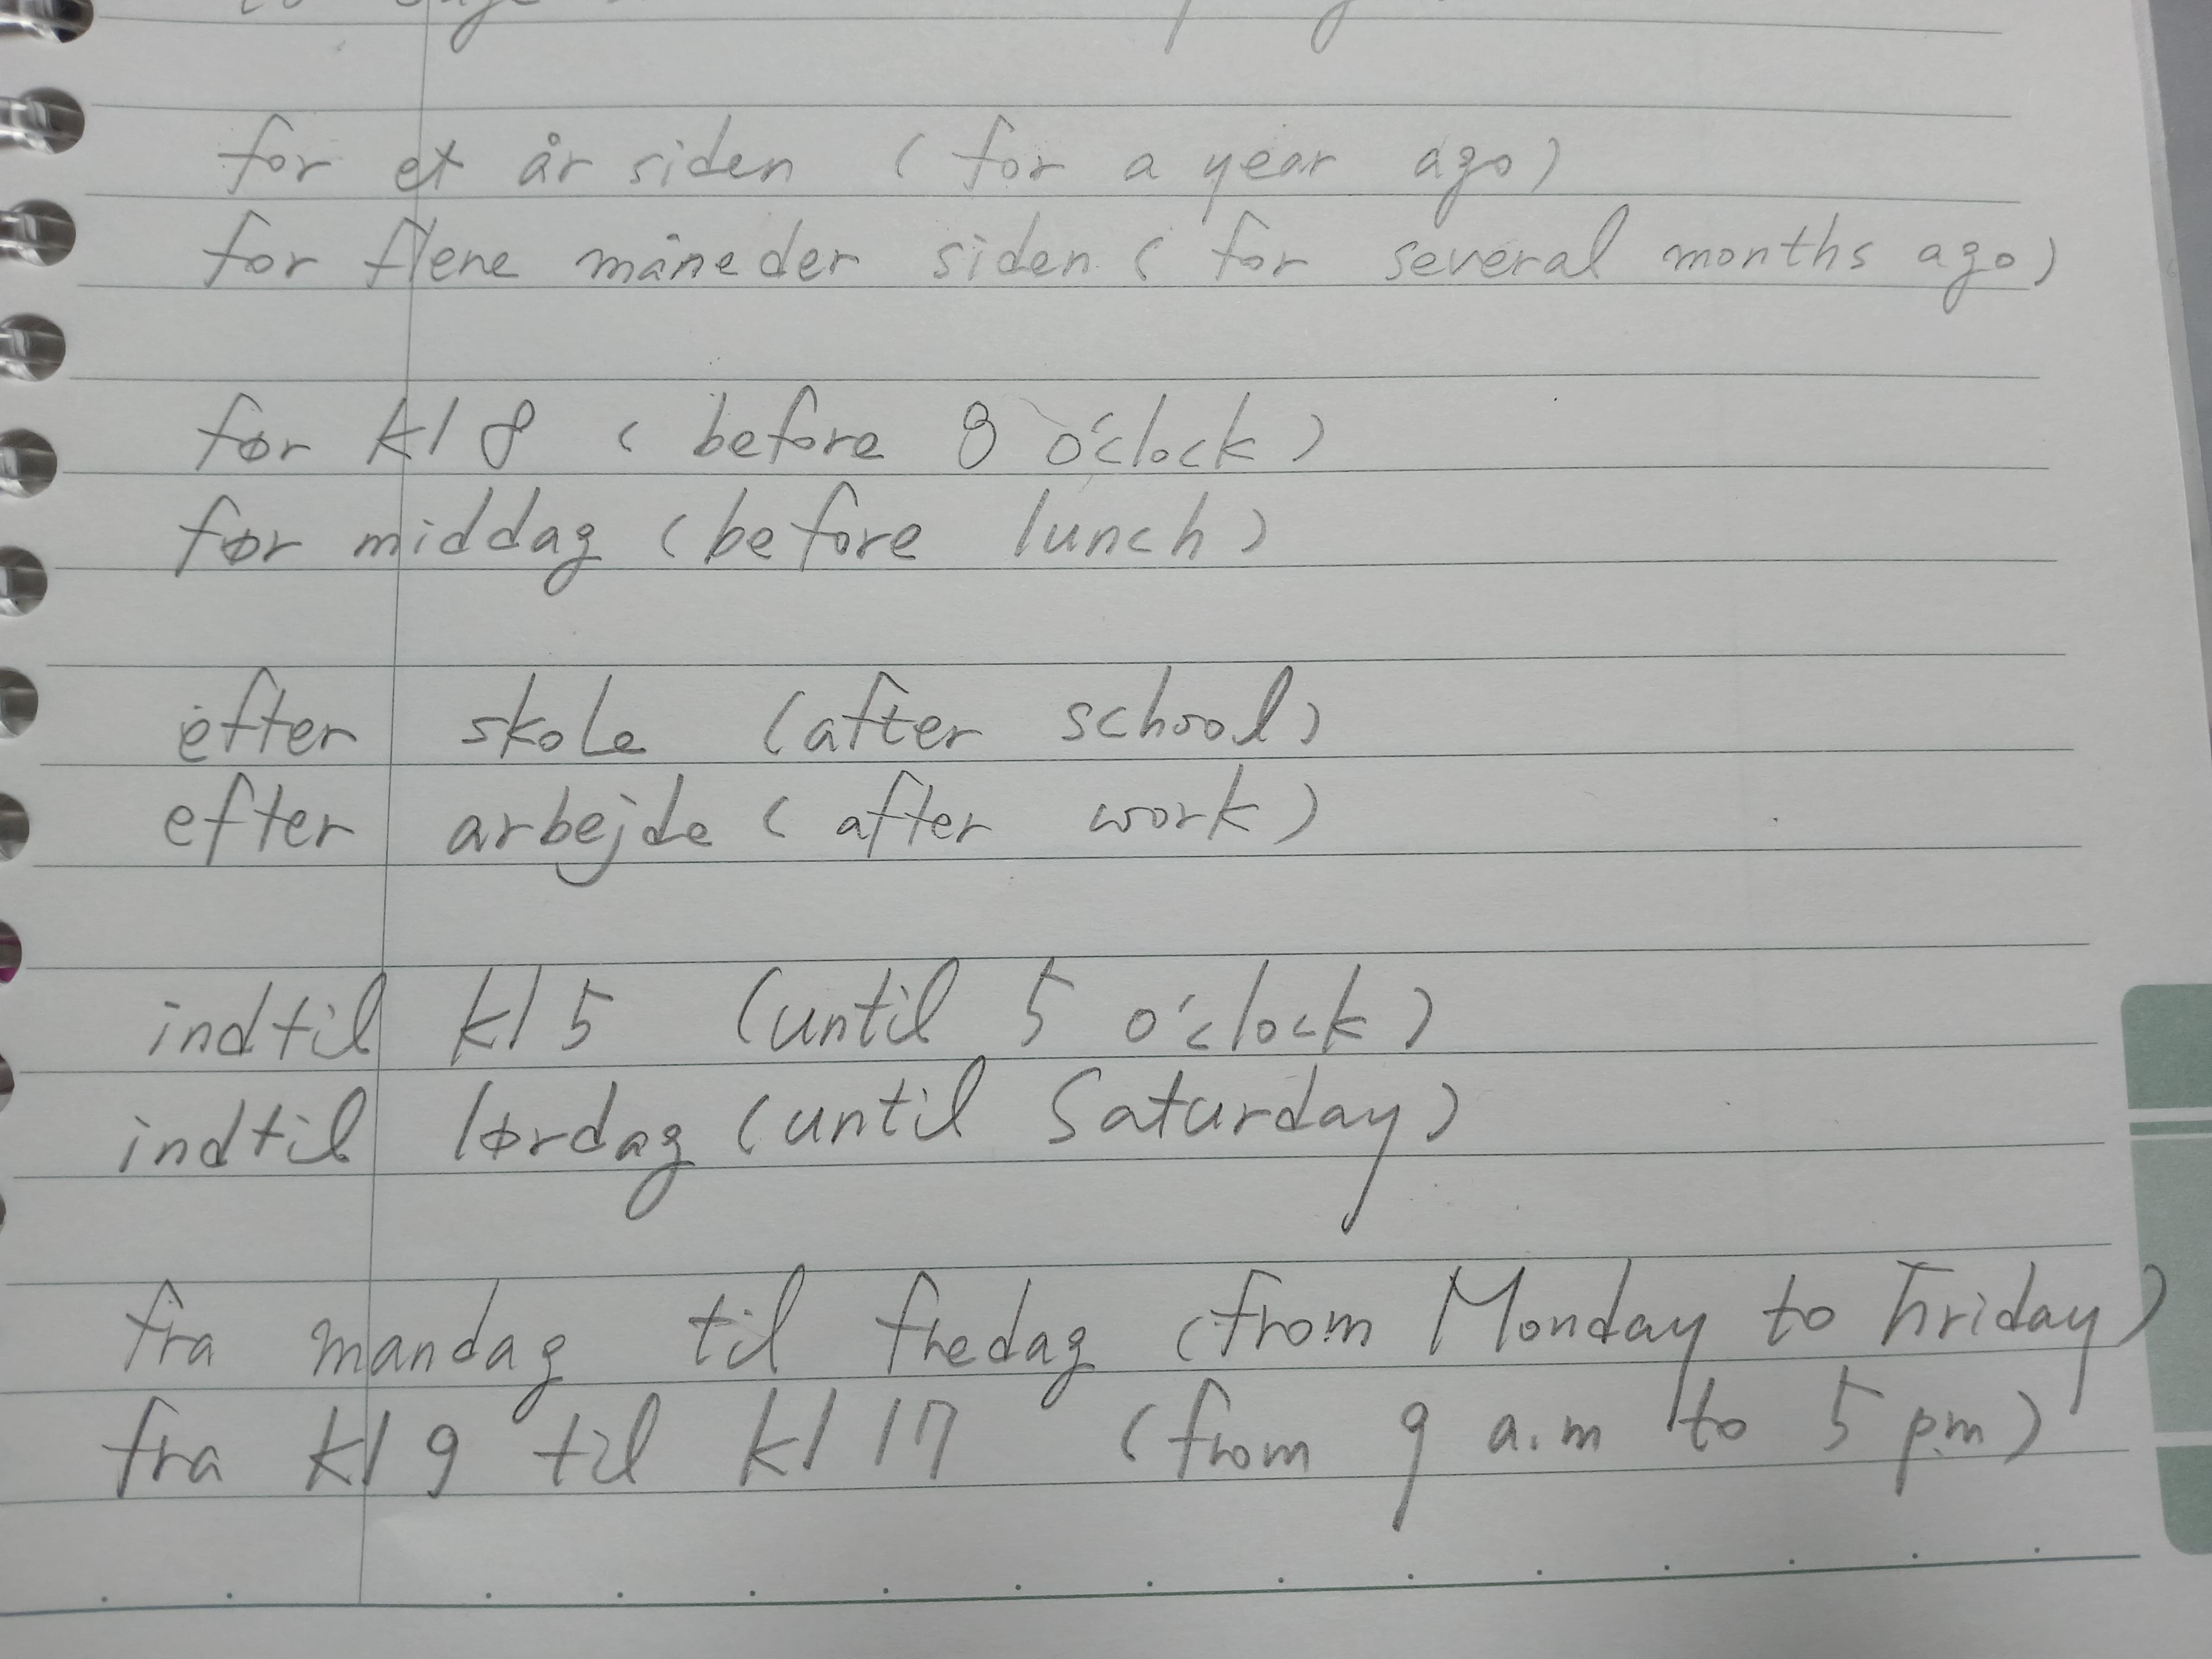 for et år siden (for a year ago)
for flere måneder siden (for several months ago)
før kl 8 (before 8 o'clock)
før middag (before lunch)
efter skole (after school)
efter arbejde (after work)
indtil kl 5 (until 5 o'clock)
indtil lørdag (until Saturday)
fra mandag til fredag (from Monday to Friday)
fra kl 9 til kl 17 (from 9 a.m to 5 p.m)